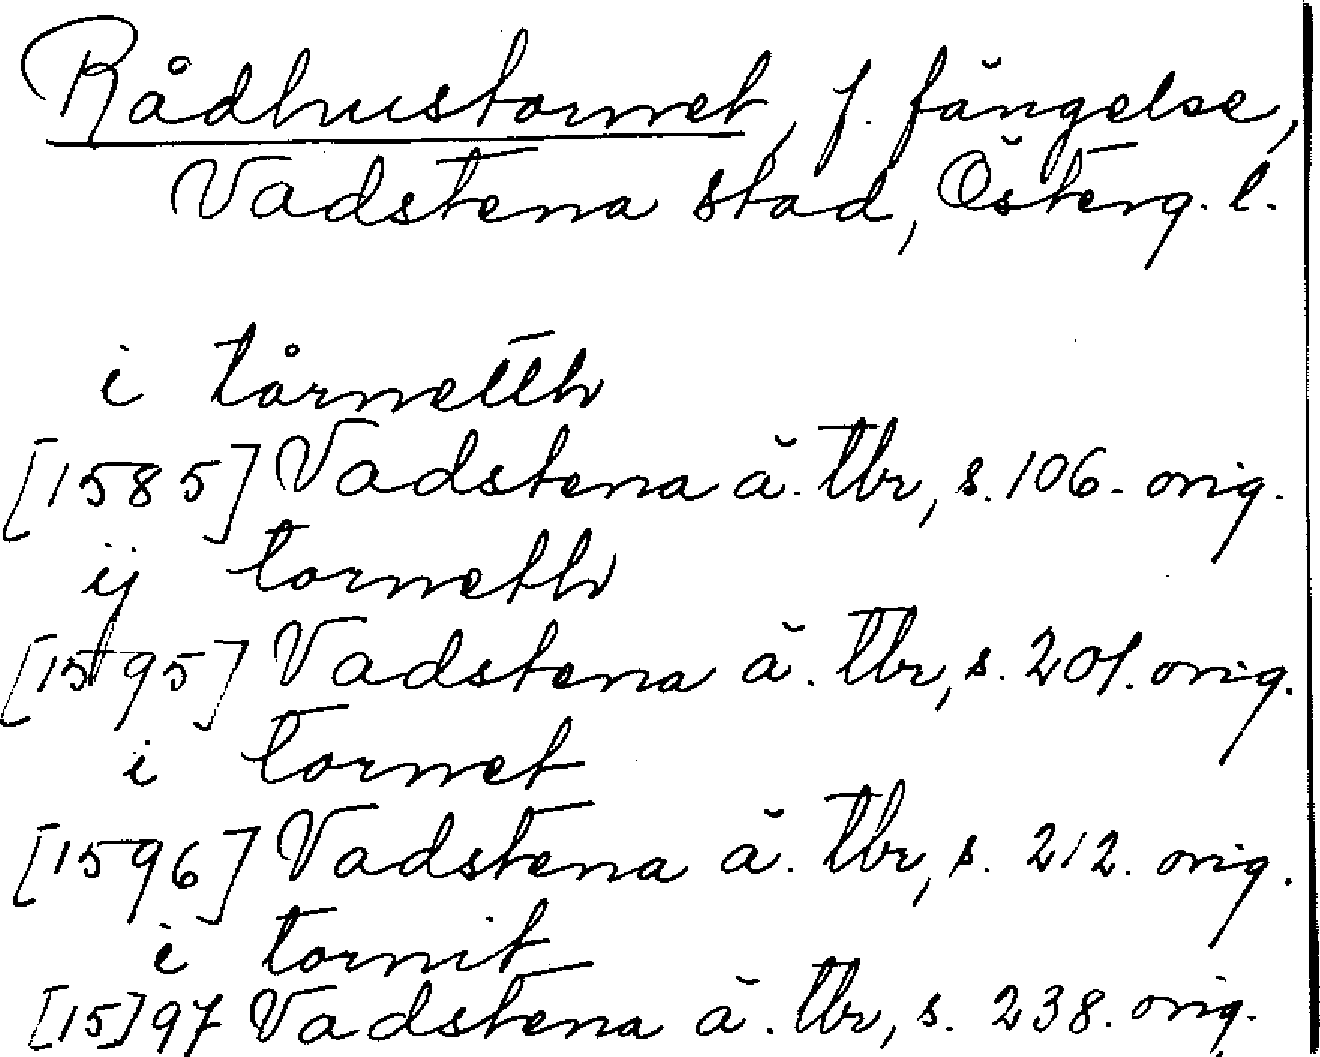 Rådhustornet, f. fängelse,
Vadstena stad, Österg. l.
i tårnetth
[1585] Vadstena ä. tbr, s. 106. orig.
ij torneth
[1595] Vadstena ä. tbr, s. 201. orig.
i tornet
[1596] Vadstena ä. tbr, s. 212. orig.
i tornit
[15]97 Vadstena ä. tbr, s. 238. orig.